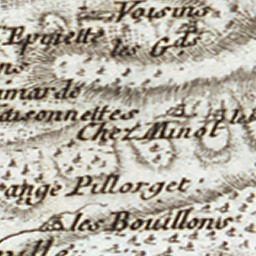 Voisins
Epinette
les Gds
ns
amards
aisonnettes
les
Chez Minot
ange Pillorget
les Bouillons
ille